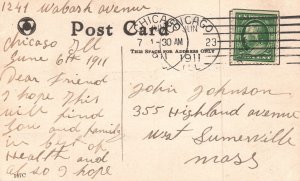 1241 Wabash avenue
Chicago Ill
June 6th 1911
Dear friend
I hope This
will find
you and family
in best of
Health and
also I hope
Post Card
THIS SPACE FOR ADDRESS ONLY
CHICAGO
CHICAGO
7 1-30 AM
23
1911
ILL
John Johnson
355 Highland avenue
West Sumerville
Mass